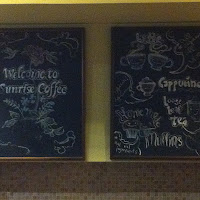 Welcome to
Sunrise Coffee
Latte
Cappuccino
Loose
Leaf
Tea
Muffins